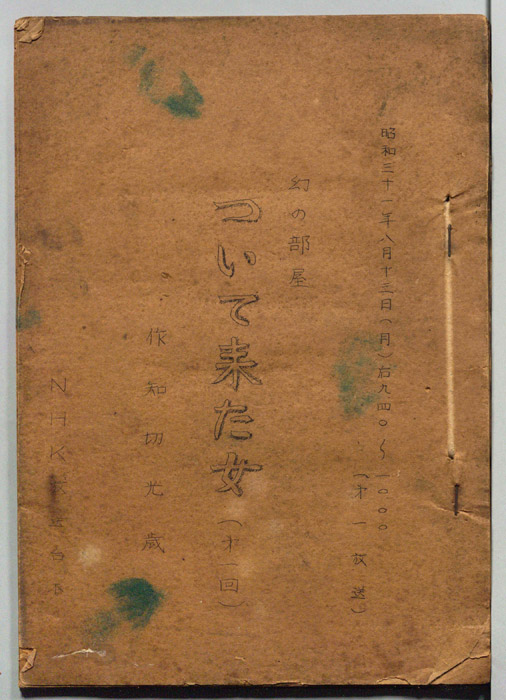 昭和三十一年八月十三日(月)后九四〇~一〇〇〇
(才一放送)
幻の部屋
ついて来た女
(才一回)
作 知切光歳
NHK